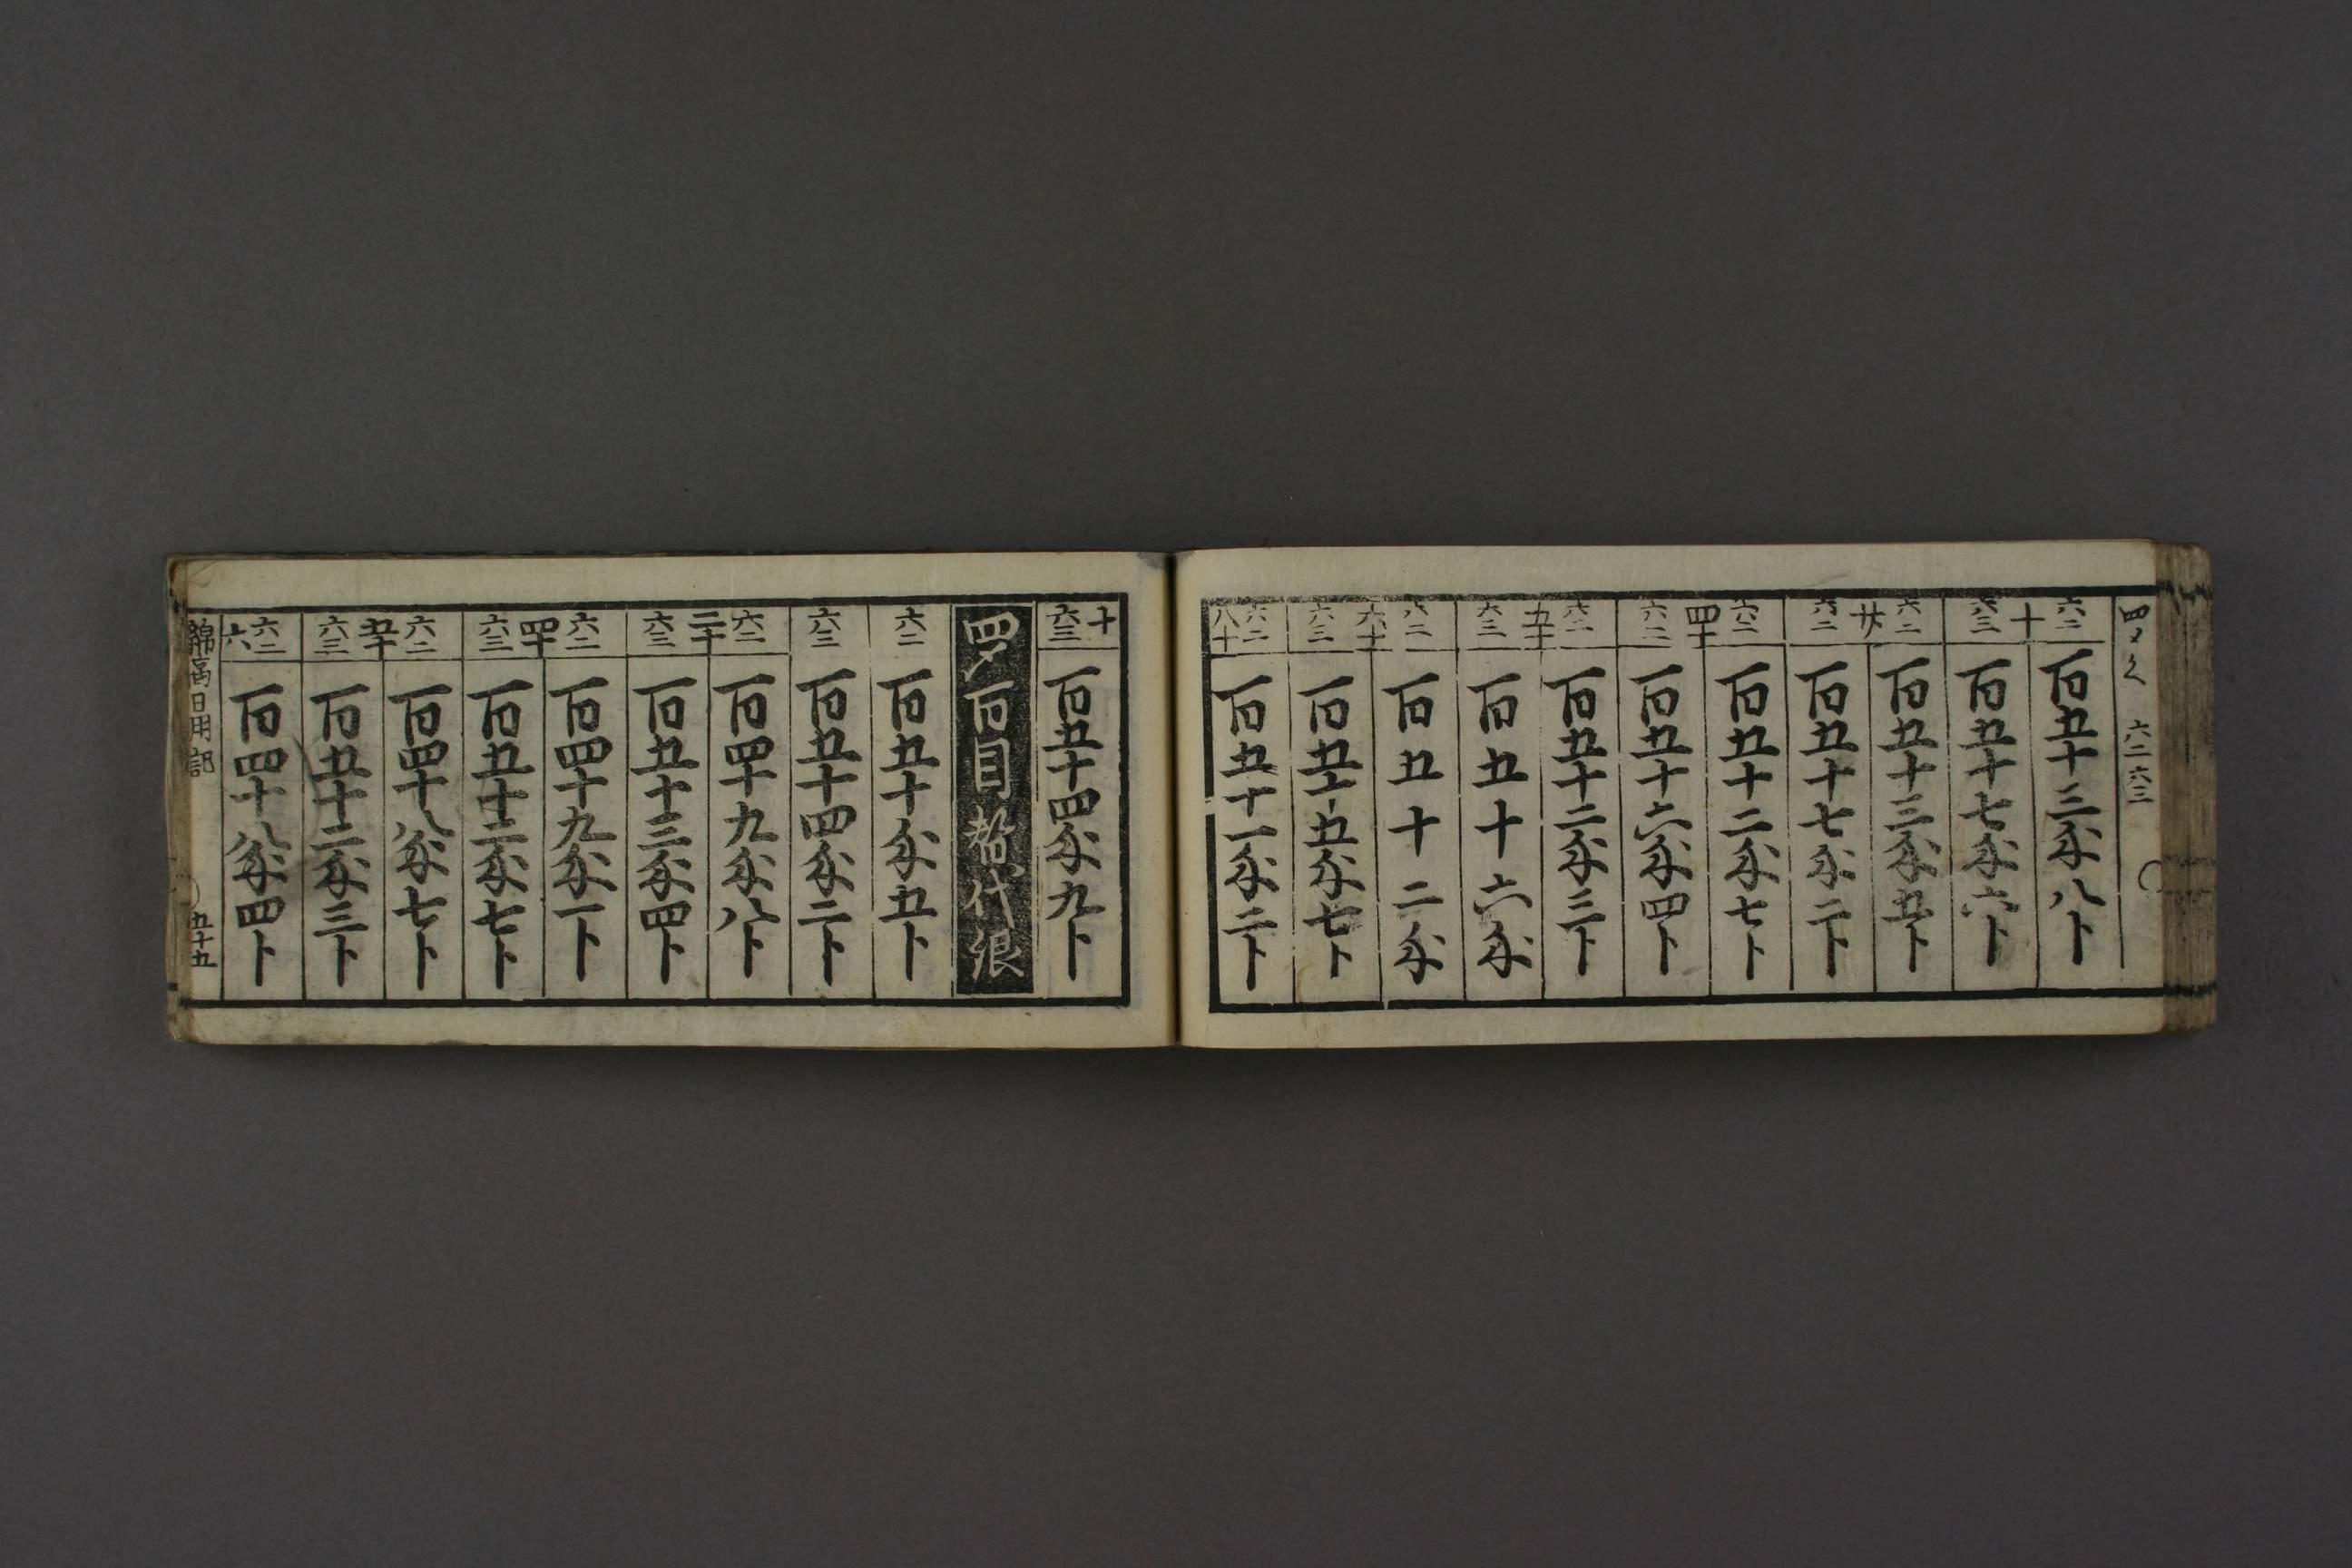 四〆〱 六二 六三
六二 百五十三匁八卜
十
六三 百五十七匁六卜
六二 百五十三匁五卜
廿
六三 百五十七匁二卜
六二 百五十二匁七卜
四十
六三 百五十六匁四卜
六二 百五十二匁三卜
五十
六三 百五十六匁
六二 百五十二匁
六十
六三 百五十五匁七卜
六二 八十 百五十一匁二卜
十 六三 百五十四匁九卜
四〆百目替代銀
六二 百五十匁五卜
六三 百五十四匁二卜
六二 百四十九匁八卜
二十
六三 百五十三匁四卜
六二 百四十九匁一卜
四十
六三 百五十二匁七卜
六二 百四十八匁七卜
五十
六三 百五十二匁三卜
六二 六 百四十八匁四卜
日用記 五十五